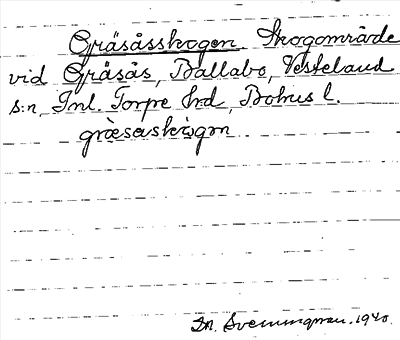 Gräsåsskogen Skogområde
vid Gräsås, Ballabo, Vesteland
s:n, Inl. Torpe hrd, Bohus l.
gräsåskògən
In. Svenningman. 1940.